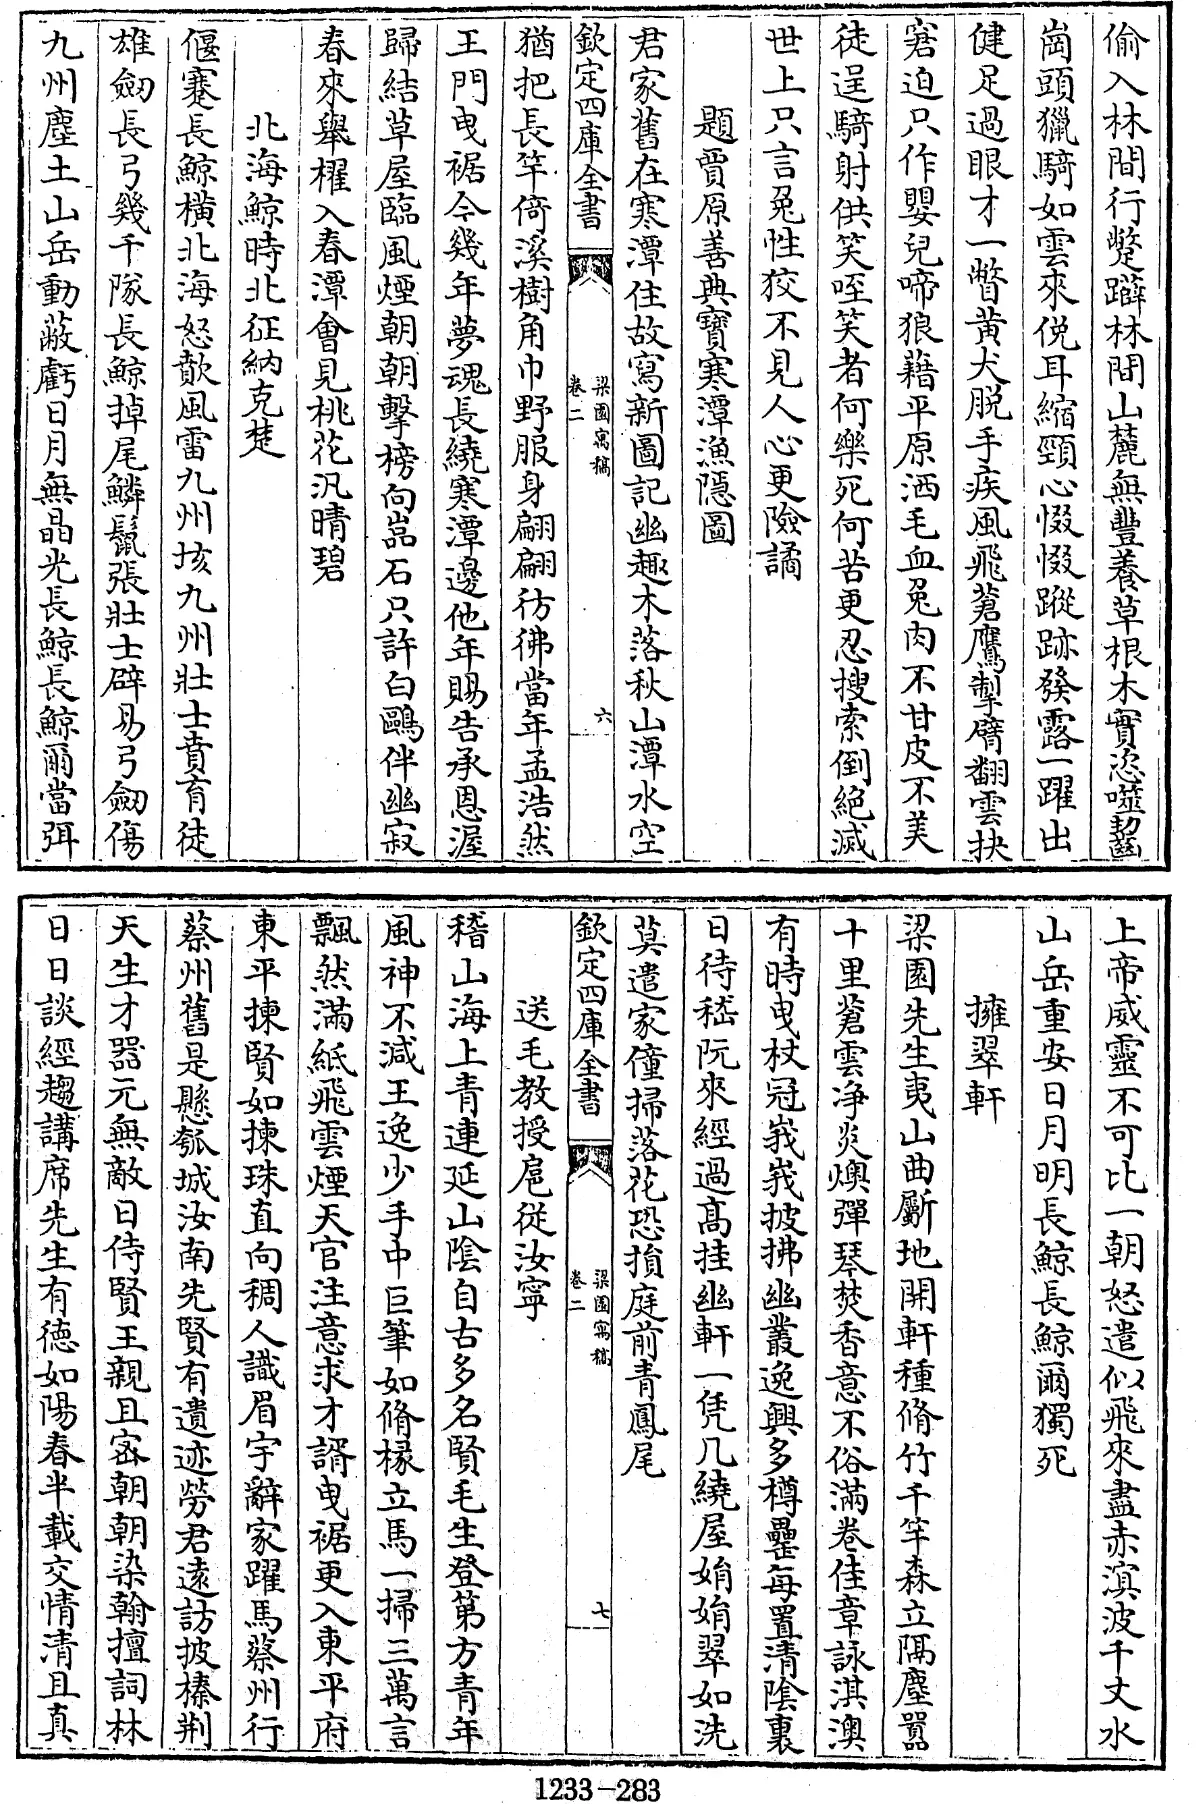 偷入林間行蹩躃林間山麓無豐養草根木實恣噬齧
崗頭獵騎如雲來俛耳縮頸心惙惙蹤跡發露一躍出
健足過眼才一瞥黄犬脱手疾風飛蒼鷹掣臂翻雲抉
窘迫只作嬰兒啼狼藉平原洒毛血兔肉不甘皮不美
徒逞騎射供笑咥笑者何樂死何苦更忍搜索倒絶滅
世上只言兔性狡不見人心更險譎
題賈原善典寳寒潭漁隱圖
君家舊在寒潭住故寫新圖記幽趣木落秋山潭水空
欽定四庫全書
梁園寓稿
卷二
六
猶把長竿倚溪樹角巾野服身翩翩彷彿當年孟浩然
王門曳裾今幾年夢魂長繞寒潭邊他年賜告承恩渥
歸結草屋臨風煙朝朝擊榜向嵓石只許白鷗伴幽寂
春來舉櫂入春潭會見桃花汎晴碧
北海鯨時北征納克楚
偃蹇長鯨橫北海怒歕風雷九州垓九州壯士賁育徒
雄劒長弓幾千隊長鯨掉尾鱗鬛張壯士辟易弓劒傷
九州塵土山岳動蔽虧日月無晶光長鯨長鯨爾當弭
上帝威靈不可比一朝怒遣似飛來盡赤滇波千丈水
山岳重安日月明長鯨長鯨爾獨死
擁翠軒
梁園先生夷山曲斸地開軒種脩竹千竿森立隔塵嚣
十里蒼雲净炎燠彈琴焚香意不俗滿卷佳章詠淇澳
有時曳杖冠峩峩披拂幽叢逸興多樽罍每置清陰裏
日待嵇阮來經過高挂幽軒一凭几繞屋娟娟翠如洗
莫遣家僮掃落花恐損庭前青鳳尾
欽定四庫全書
梁園寓稿
卷二
七
送毛教授扈從汝寧
稽山海上青連延山陰自古多名賢毛生登第方青年
風神不減王逸少手中巨筆如脩椽立馬一掃三萬言
飄然滿紙飛雲煙天官注意求才諝曳裾更入東平府
東平揀賢如揀珠直向稠人識眉宇辭家躍馬蔡州行
蔡州舊是懸瓠城汝南先賢有遺迹勞君遠訪披榛荆
天生才器元無敵日侍賢王親且宻朝朝染翰擅詞林
日日談經趨講席先生有徳如陽春半載交情清且真
1233-283